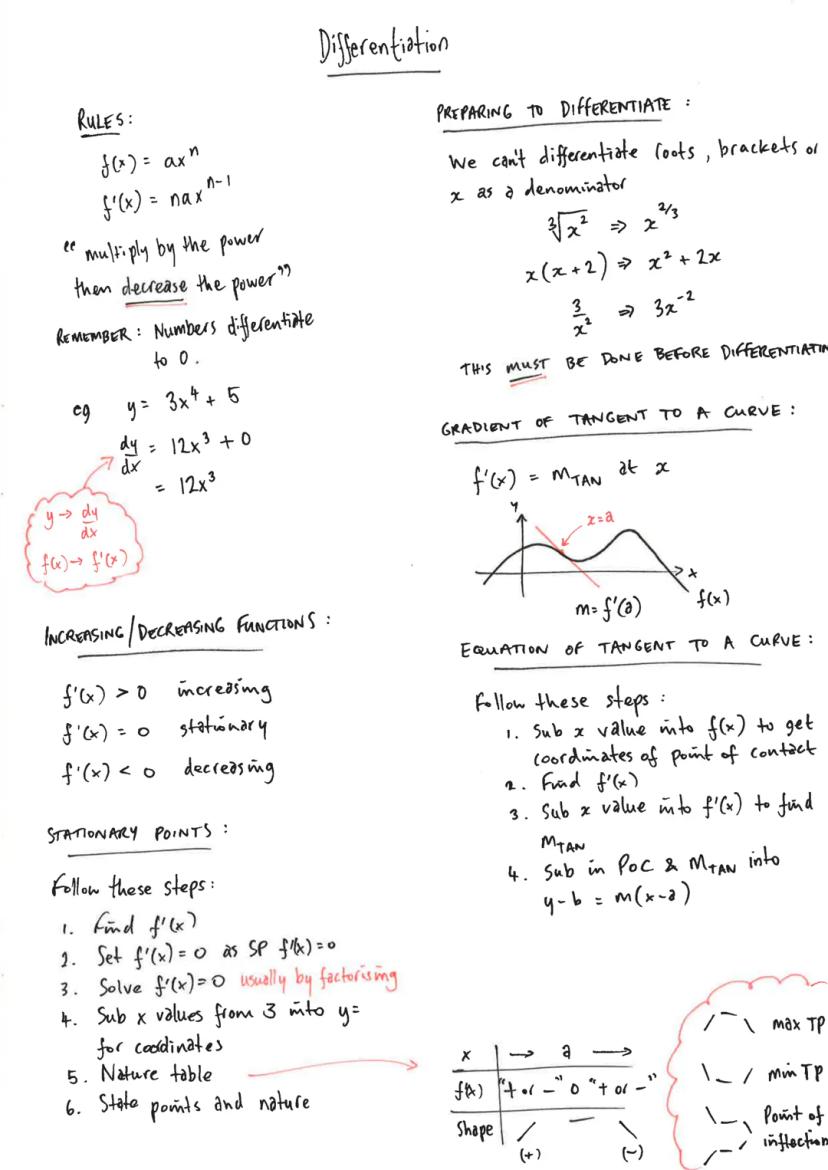 Differentiation
RULES:
f(x) = ax^n
f'(x) = nax^(n-1)
"multiply by the power
then decrease the power"
REMEMBER: Numbers differentiate
to 0.
eg y = 3x^4 + 5
dy/dx = 12x^3 + 0
= 12x^3
y → dy/dx
f(x) → f'(x)
INCREASING/DECREASING FUNCTIONS:
f'(x) > 0 increasing
f'(x) = 0 stationary
f'(x) < 0 decreasing
STATIONARY POINTS:
Follow these steps:
1. Find f'(x)
2. Set f'(x) = 0 as SP f'(x) = 0
3. Solve f'(x) = 0 usually by factorising
4. Sub x values from 3 into y=
for coordinates
5. Nature table
6. State points and nature
PREPARING TO DIFFERENTIATE:
We can't differentiate roots, brackets or
x as a denominator
∛x² ⇒ x^(2/3)
x(x+2) ⇒ x² + 2x
3/x² ⇒ 3x^(-2)
THIS MUST BE DONE BEFORE DIFFERENTIATIN
GRADIENT OF TANGENT TO A CURVE:
f'(x) = M_TAN at x
y
x=a
x
m = f'(a)
f(x)
EQUATION OF TANGENT TO A CURVE:
Follow these steps:
1. Sub x value into f(x) to get
coordinates of point of contact
2. Find f'(x)
3. Sub x value into f'(x) to find
M_TAN
4. Sub in PoC & M_TAN into
y-b = m(x-a)
x → a →
f'(x) "+ or -" 0 "+ or -"
Shape / — \
(+) (-)
max TP
min TP
Point of
inflection